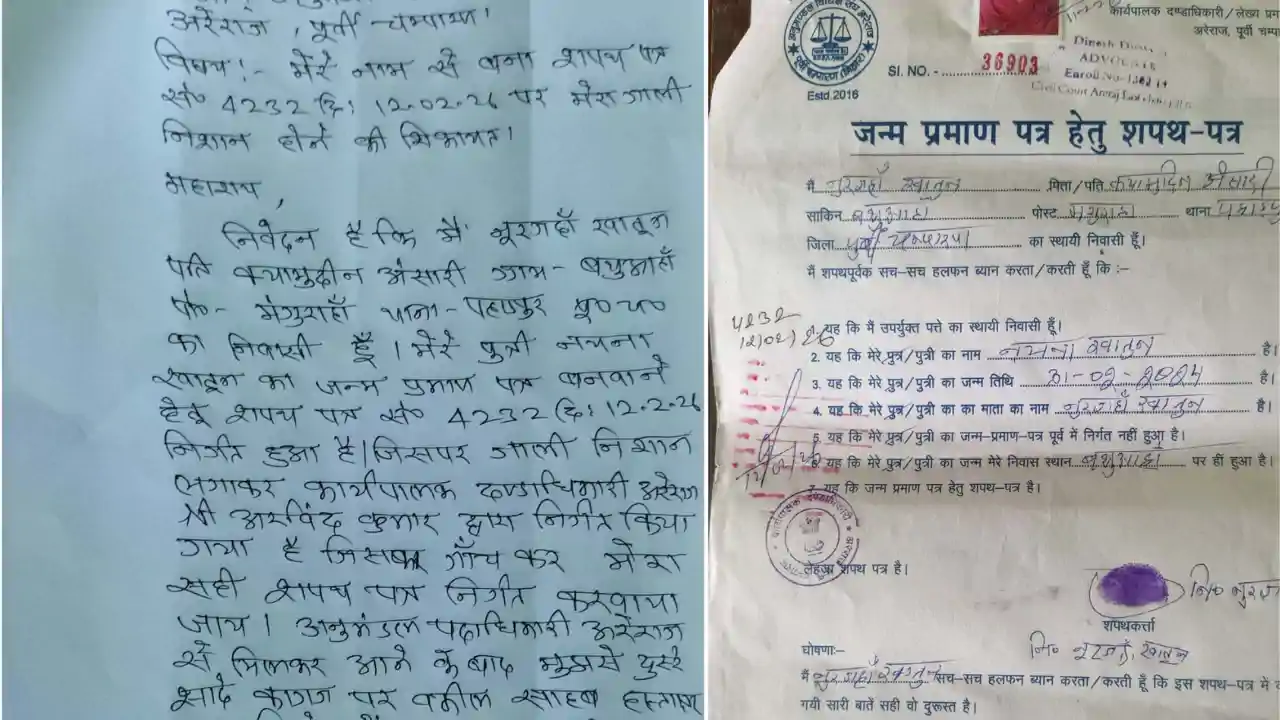 अरेराज, पूर्वी-चम्पारण।
विषय:- मेरे नाम से बना शपथ पत्र
सं० 4232 दि: 12.02.26 पर मेरा जाली
निशान होने की शिकायत।
महाशय,
निवेदन है कि मैं नूरजहाँ खातून
पति कयामुदीन अंसारी ग्राम- बथुआहाँ
पो०- मंगुराहाँ थाना- पहाड़पुर पू० च०
का निवासी हूँ। मेरे पुत्री नयना
खातून का जन्म प्रमाण पत्र बनवाने
हेतु शपथ पत्र सं० 4232 दि: 12.2.26
निर्गत हुआ है। जिसपर जाली निशान
लगाकर कार्यपालक दण्डाधिकारी अरेराज
श्री अरविंद कुमार द्वारा निर्गत किया
गया है जिसका जाँच कर मेरा
सही शपथ पत्र निर्गत करवाया
जाय। अनुमंडल पदाधिकारी अरेराज
से मिलकर आने के बाद मुझसे दुसरे
सादे कागज पर वकील साहब हस्ताक्षर
कार्यपालक दण्डाधिकारी/लेख्य प्रम
अरेराज, पूर्वी चम्पा
Estd.2016
SI. NO. - 36903
ADVOCATE
Enroll No-
Civil Court Areraj
जन्म प्रमाण पत्र हेतु शपथ-पत्र
मैं नुरजहाँ खातुन पिता/पति कयामुदिन अंसारी
साकिन बथुआहा पोस्ट मंगुराहा थाना
जिला पुर्वी चम्पारण का स्थायी निवासी हूँ।
मैं शपथपूर्वक सच-सच हलफन ब्यान करता/करती हूँ कि :-
4232
12/02/26
यह कि मैं उपर्युक्त पत्ते का स्थायी निवासी हूँ।
2. यह कि मेरे पुत्र/पुत्री का नाम नयना खातुन है।
3. यह कि मेरे पुत्र/पुत्री का जन्म तिथि 01-02-2024 है।
4. यह कि मेरे पुत्र/पुत्री का का माता का नाम नुरजहाँ खातुन है।
5. यह कि मेरे पुत्र/पुत्री का जन्म-प्रमाण-पत्र पूर्व में निर्गत नहीं हुआ है।
6. यह कि मेरे पुत्र/पुत्री का जन्म मेरे निवास स्थान बथुआहा पर हीं हुआ है।
7. यह कि जन्म प्रमाण पत्र हेतु शपथ-पत्र है।
लेहजा शपथ पत्र है।
शपथकर्त्ता
घोषणा:-
मैं नुरजहाँ खातुन सच-सच हलफन ब्यान करता/करती हूँ कि इस शपथ-पत्र में
गयी सारी बातें सही वो दुरूस्त है।